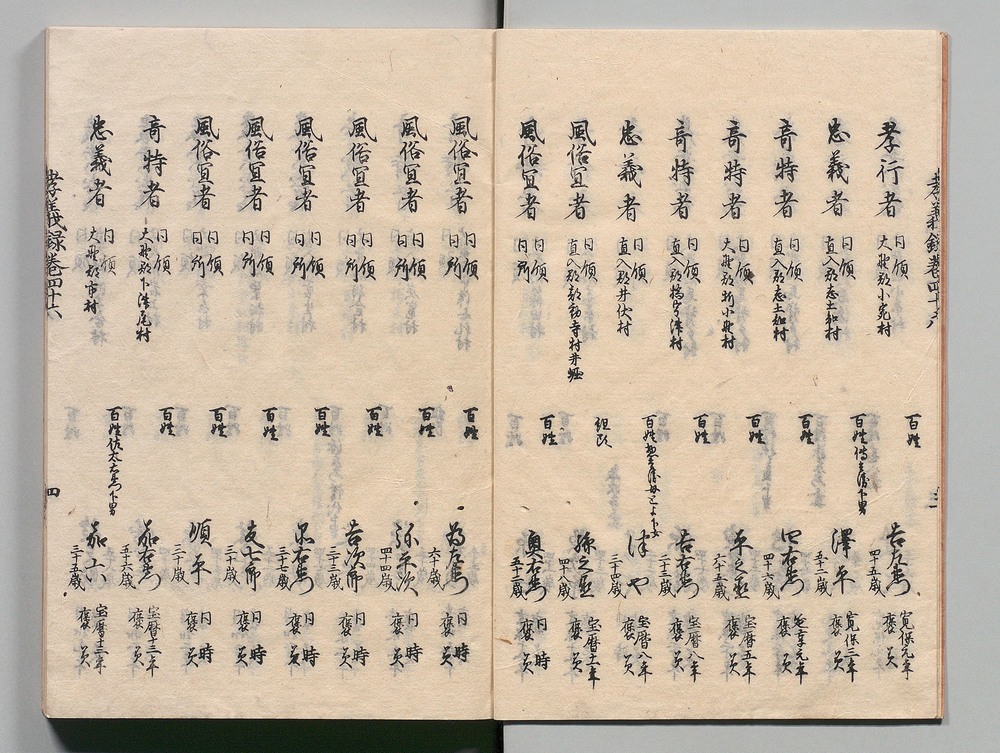 孝義録巻四十六
孝行者 同領 大野郡小宛村 百姓 吉左衛門 四十五歳 寛保元年 褒美
忠義者 同領 直入郡志土知村 百姓傳兵衛下男 澤平 五十二歳 寛保三年 褒美
奇特者 同領 直入郡志土知村 百姓 四右衛門 四十六歳 延享元年 褒美
奇特者 同領 大野郡折小野村 百姓 平之丞 六十五歳 宝暦五年 褒美
奇特者 同領 直入郡 津村 百姓 吉右衛門 三十三歳 宝暦八年 褒美
忠義者 同領 直入郡井伏村 百姓 下女 津や 三十四歳 宝暦八年 褒美
風俗宜者 同領 直入郡 寺村 組頭 孫之丞 四十八歳 宝暦十一年 褒美
風俗宜者 同領 同所 百姓 奥右衛門 五十三歳 同時 褒美
三
風俗宜者 同領 同所 百姓 為左衛門 六十歳 同時 褒美
風俗宜者 同領 同所 百姓 弥平次 四十四歳 同時 褒美
風俗宜者 同領 同所 百姓 吉次郎 三十三歳 同時 褒美
風俗宜者 同領 同所 百姓 右衛門 三十七歳 同時 褒美
風俗宜者 同領 同所 百姓 友七郎 三十歳 同時 褒美
風俗宜者 同領 同所 百姓 順平 三十歳 同時 褒美
奇特者 同領 大野郡下津尾村 百姓 茄右衛門 五十六歳 宝暦十三年 褒美
忠義者 同領 大野郡市村 百姓佐太右衛門下男 茄六 三十五歳 宝暦十三年 褒美
孝義録巻四十六
四